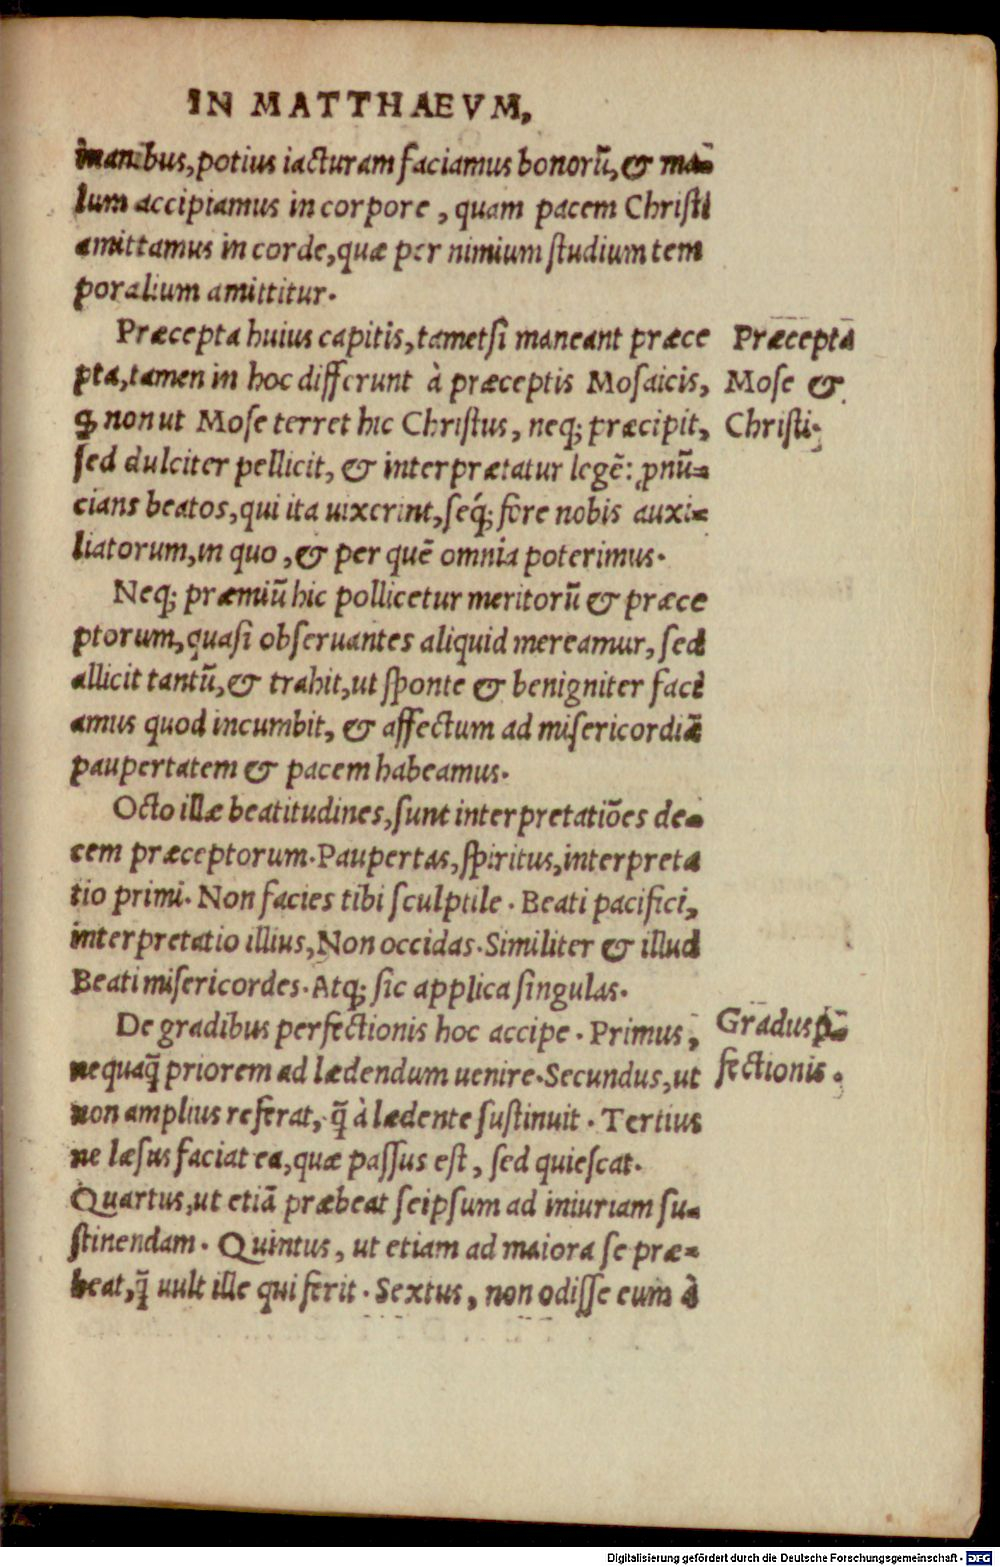 IN MATTHAEVM,
inanibus, potius iacturam faciamus bonorũ, & ma-
lum accipiamus in corpore, quam pacem Christi
amittamus in corde, quæ per nimium studium tem
poralium amittitur.
Præcepta huius capitis, tametsi maneant præce
pta, tamen in hoc differunt à præceptis Mosaicis,
ꝙ non ut Mose terret hic Christus, neq; præcipit,
sed dulciter pellicit, & interprætatur legẽ: ꝓnũ-
cians beatos, qui ita uixerint, seq́; fore nobis auxi-
liatorum, in quo, & per quẽ omnia poterimus.
Præcepta
Mose &
Christi.
Neq; præmiũ hic pollicetur meritorũ & præce
ptorum, quasi obseruantes aliquid mereamur, sed
allicit tantũ, & trahit, ut sponte & benigniter faci
amus quod incumbit, & affectum ad misericordiã
paupertatem & pacem habeamus.
Octo illæ beatitudines, sunt interpretatiões de-
cem præceptorum. Paupertas, spiritus, interpreta
tio primi. Non facies tibi sculptile. Beati pacifici,
interpretatio illius, Non occidas. Similiter & illud
Beati misericordes. Atq; sic applica singulas.
De gradibus perfectionis hoc accipe. Primus,
nequaq̃ priorem ad lædendum uenire. Secundus, ut
non amplius referat, q̃ à lædente sustinuit. Tertius
ne læsus faciat ea, quæ passus est, sed quiescat.
Quartus, ut etiã præbeat seipsum ad iniuriam su-
stinendam. Quintus, ut etiam ad maiora se præ-
beat, q̃ uult ille qui ferit. Sextus, non odisse eum à
Gradus ꝑ-
fectionis.
Digitalisierung gefördert durch die Deutsche Forschungsgemeinschaft - DFG